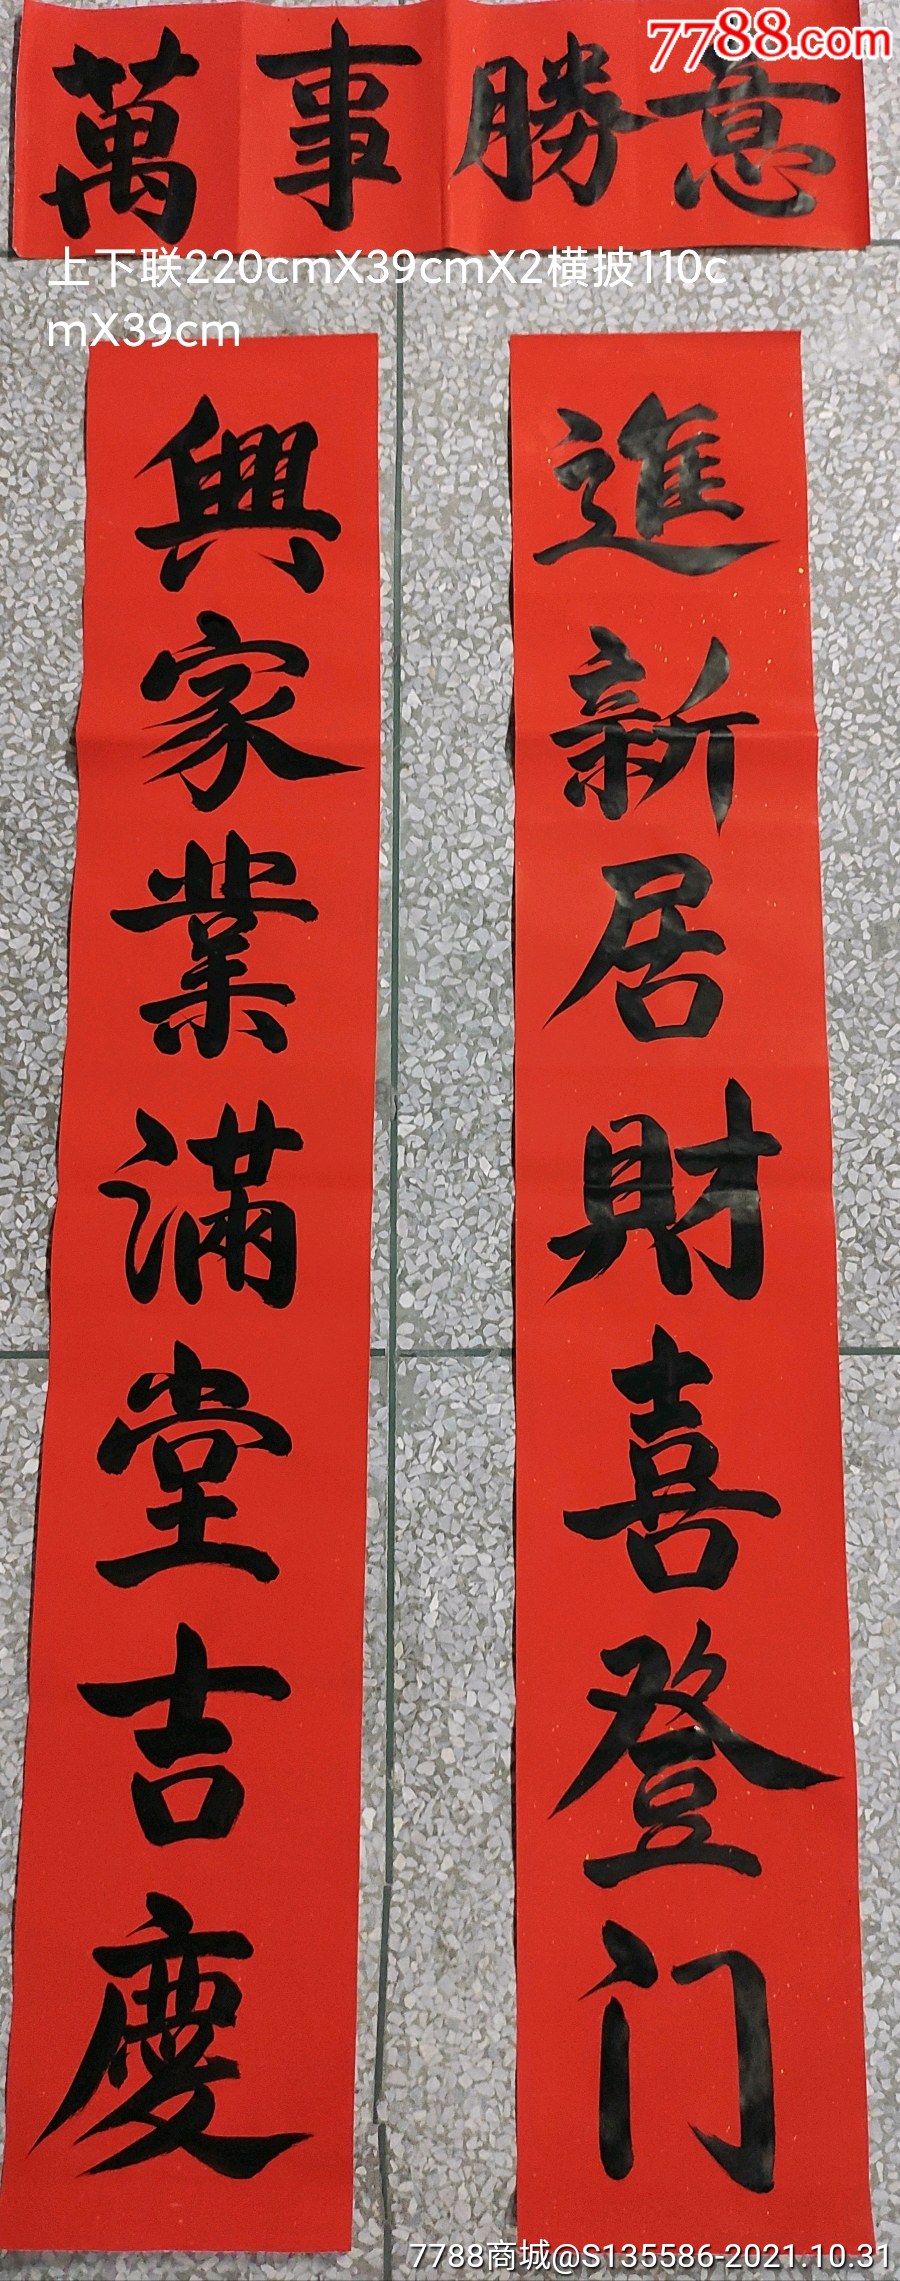 7788.com
萬事勝意
上下联220cmX39cmX2横披110c
mX39cm
興家業滿堂吉慶
進新居財喜登门
7788商城@S135586-2021.10.31